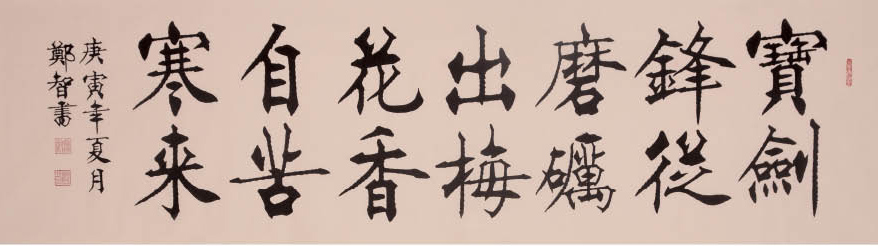 寶劍
鋒從
磨礪
出梅
花香
自苦
寒来
庚寅年夏月
鄭智書